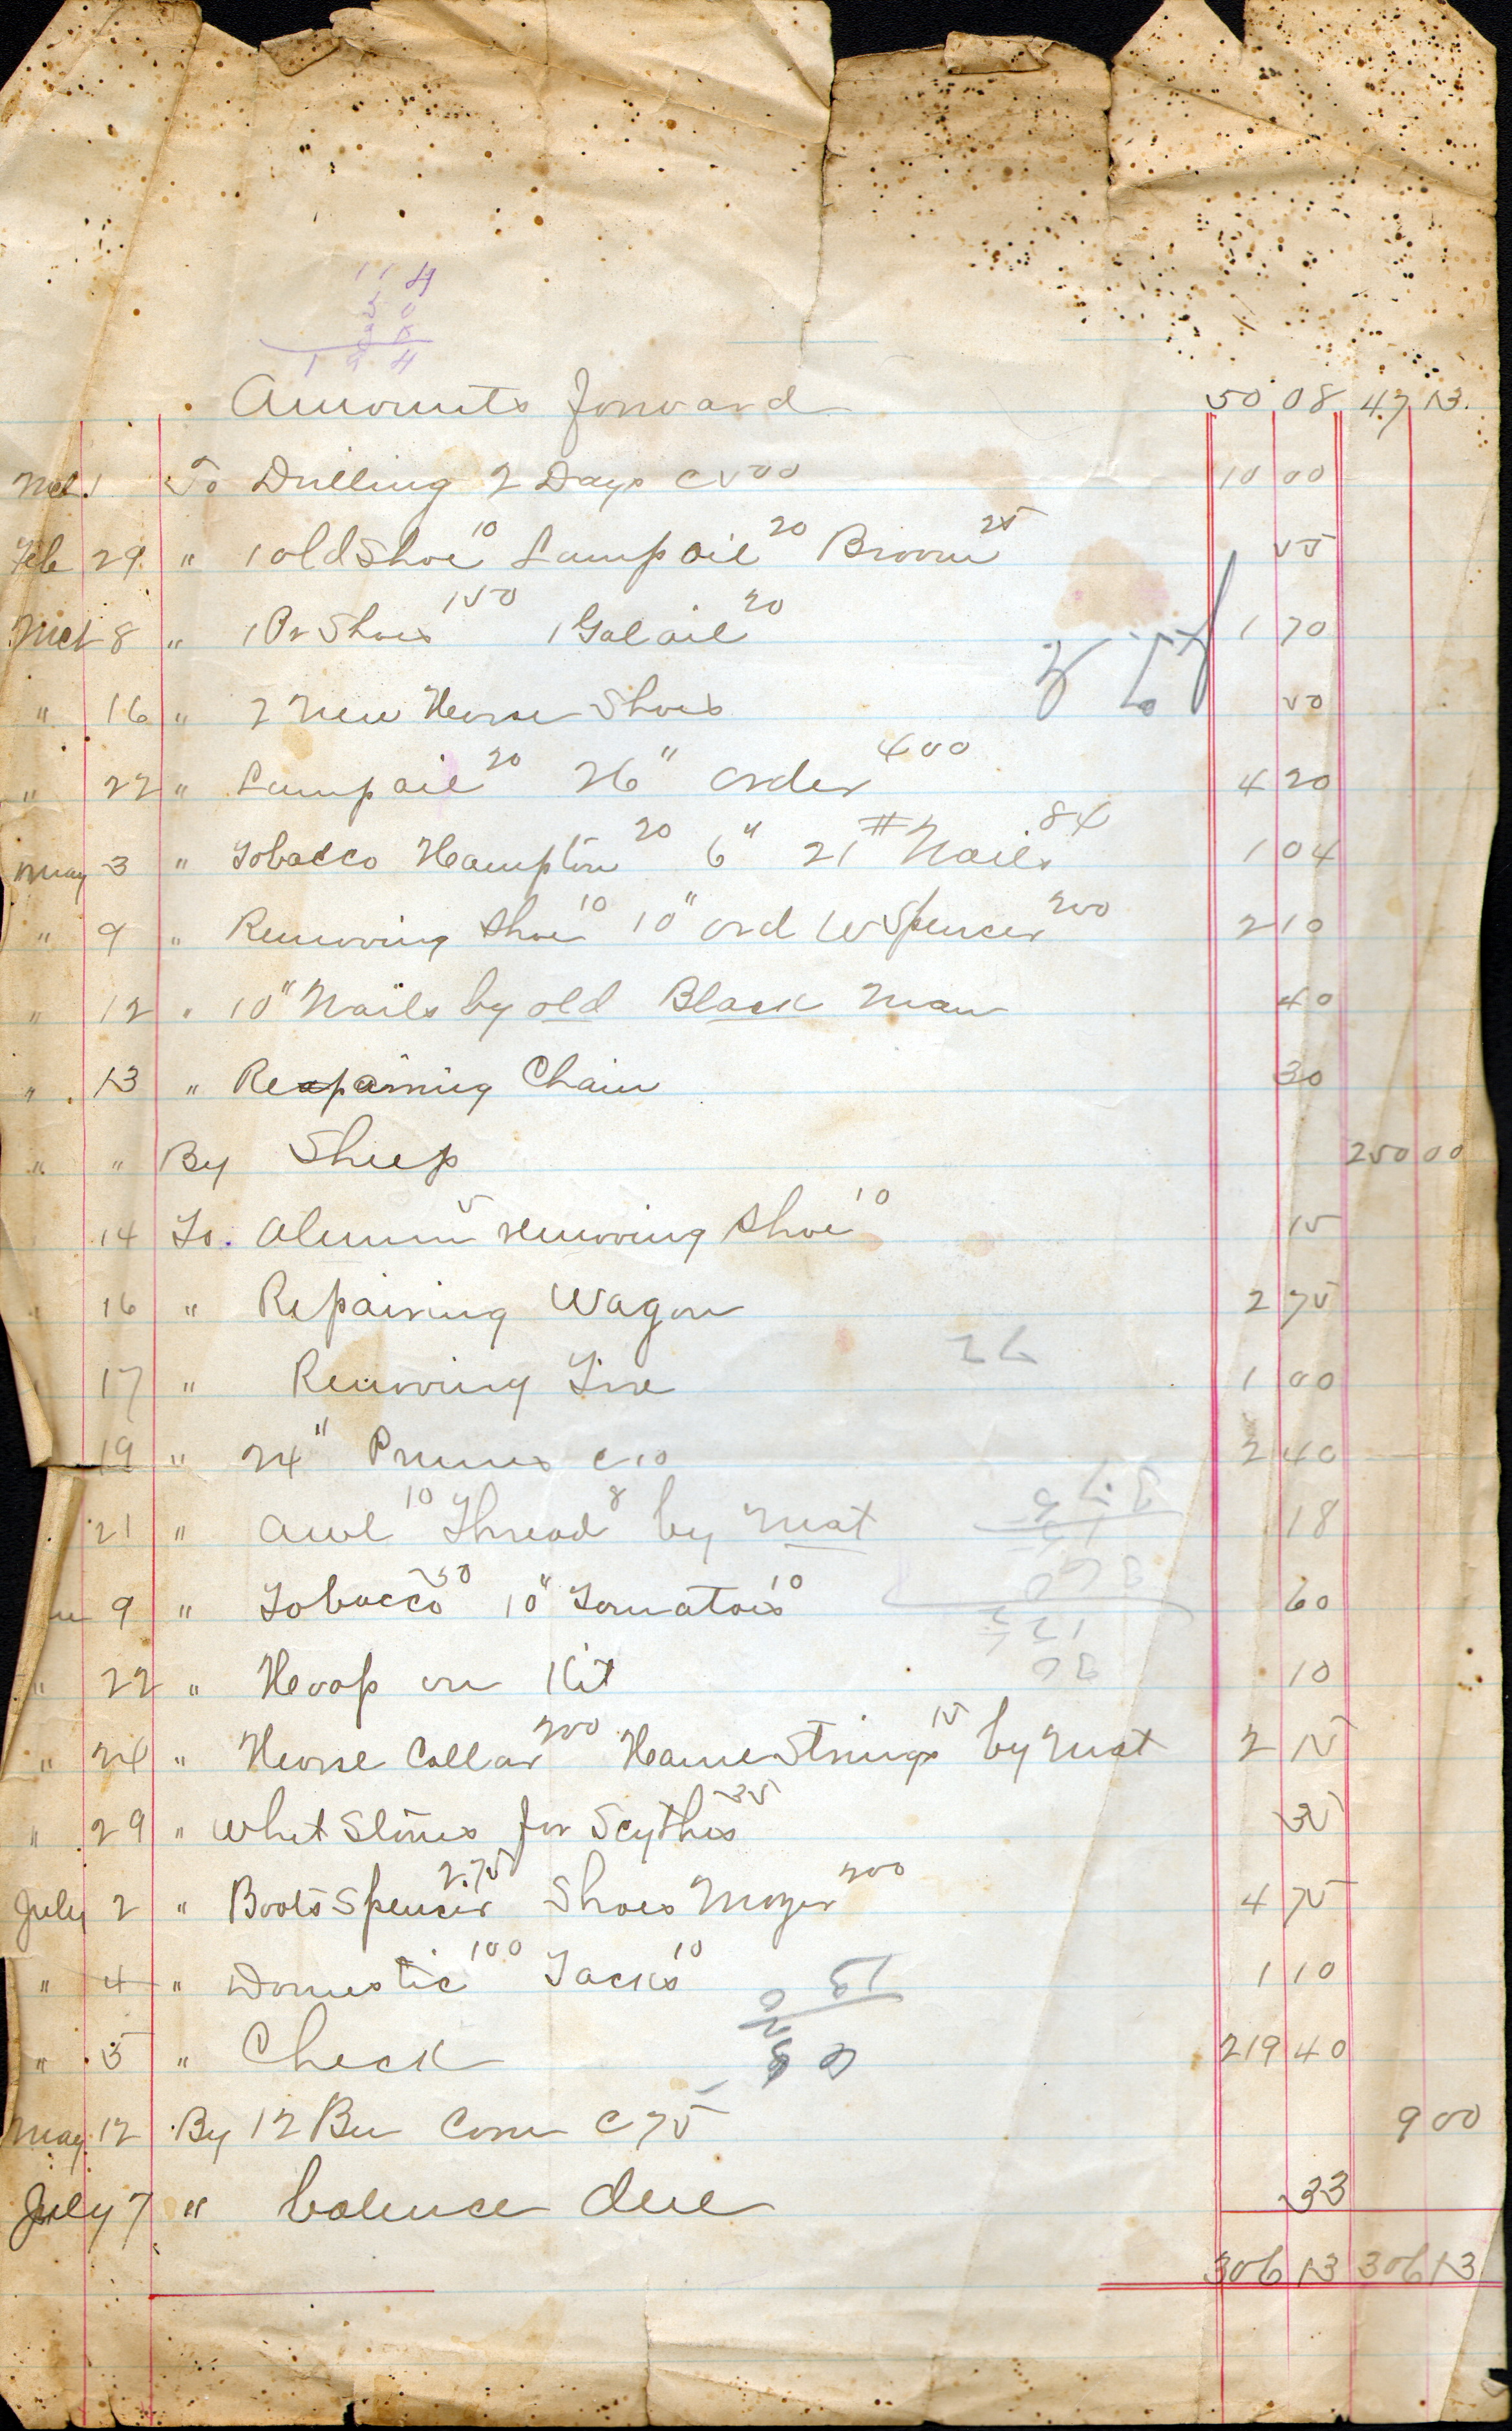 114
50
194
Amounts forward 50 08 47 13.
Mch. 1 To Drilling 2 Days @ 500 10 00
Feb 29. " 1 old Shoe 10 Lamp oil 20 Broom 25 55
Mch 8 " 1 Pr Shoes 150 1 Gal oil 20 1 70
" 16 " 2 New Horse Shoes 50
" 22 " Lamp oil 20 26" order 400 4 20
May 3 " Tobacco Hampton 20 6" 21 # Nails 84 1 04
" 9 " Removing Shoe 10 10" ord W Spencer 200 2 10
" 12 " 10" Nails by old Black Man 40
" 13 " Repairing Chain 30
" " By Sheep 250 00
14 To. Alumn 5 removing Shoe 10 15
" 16 " Repairing Wagon 2 75
17 " Removing Tire 1 00
19 " 24" Prunes @ 10 2 40
26
21 " Awl 10 Thread 8 by Mat 18
9 " Tobacco 50 10" Tomatoes 10 60
" 22 " Hoop on Kit 10
" 24 " Horse Collar 200 Hame Strings 15 by Mat 2 15
" 29 " Whet Stones for Scythes 35 35
July 2 " Boots Spencer 2.75 Shoes Mozer 200 4 75
" 4 " Domestic 100 Tacks 10 1 10
" 5 " Check 219 40
May 12 By 12 Bu Corn @ 75 9 00
July 7 " balence due 33
306 13 306 13